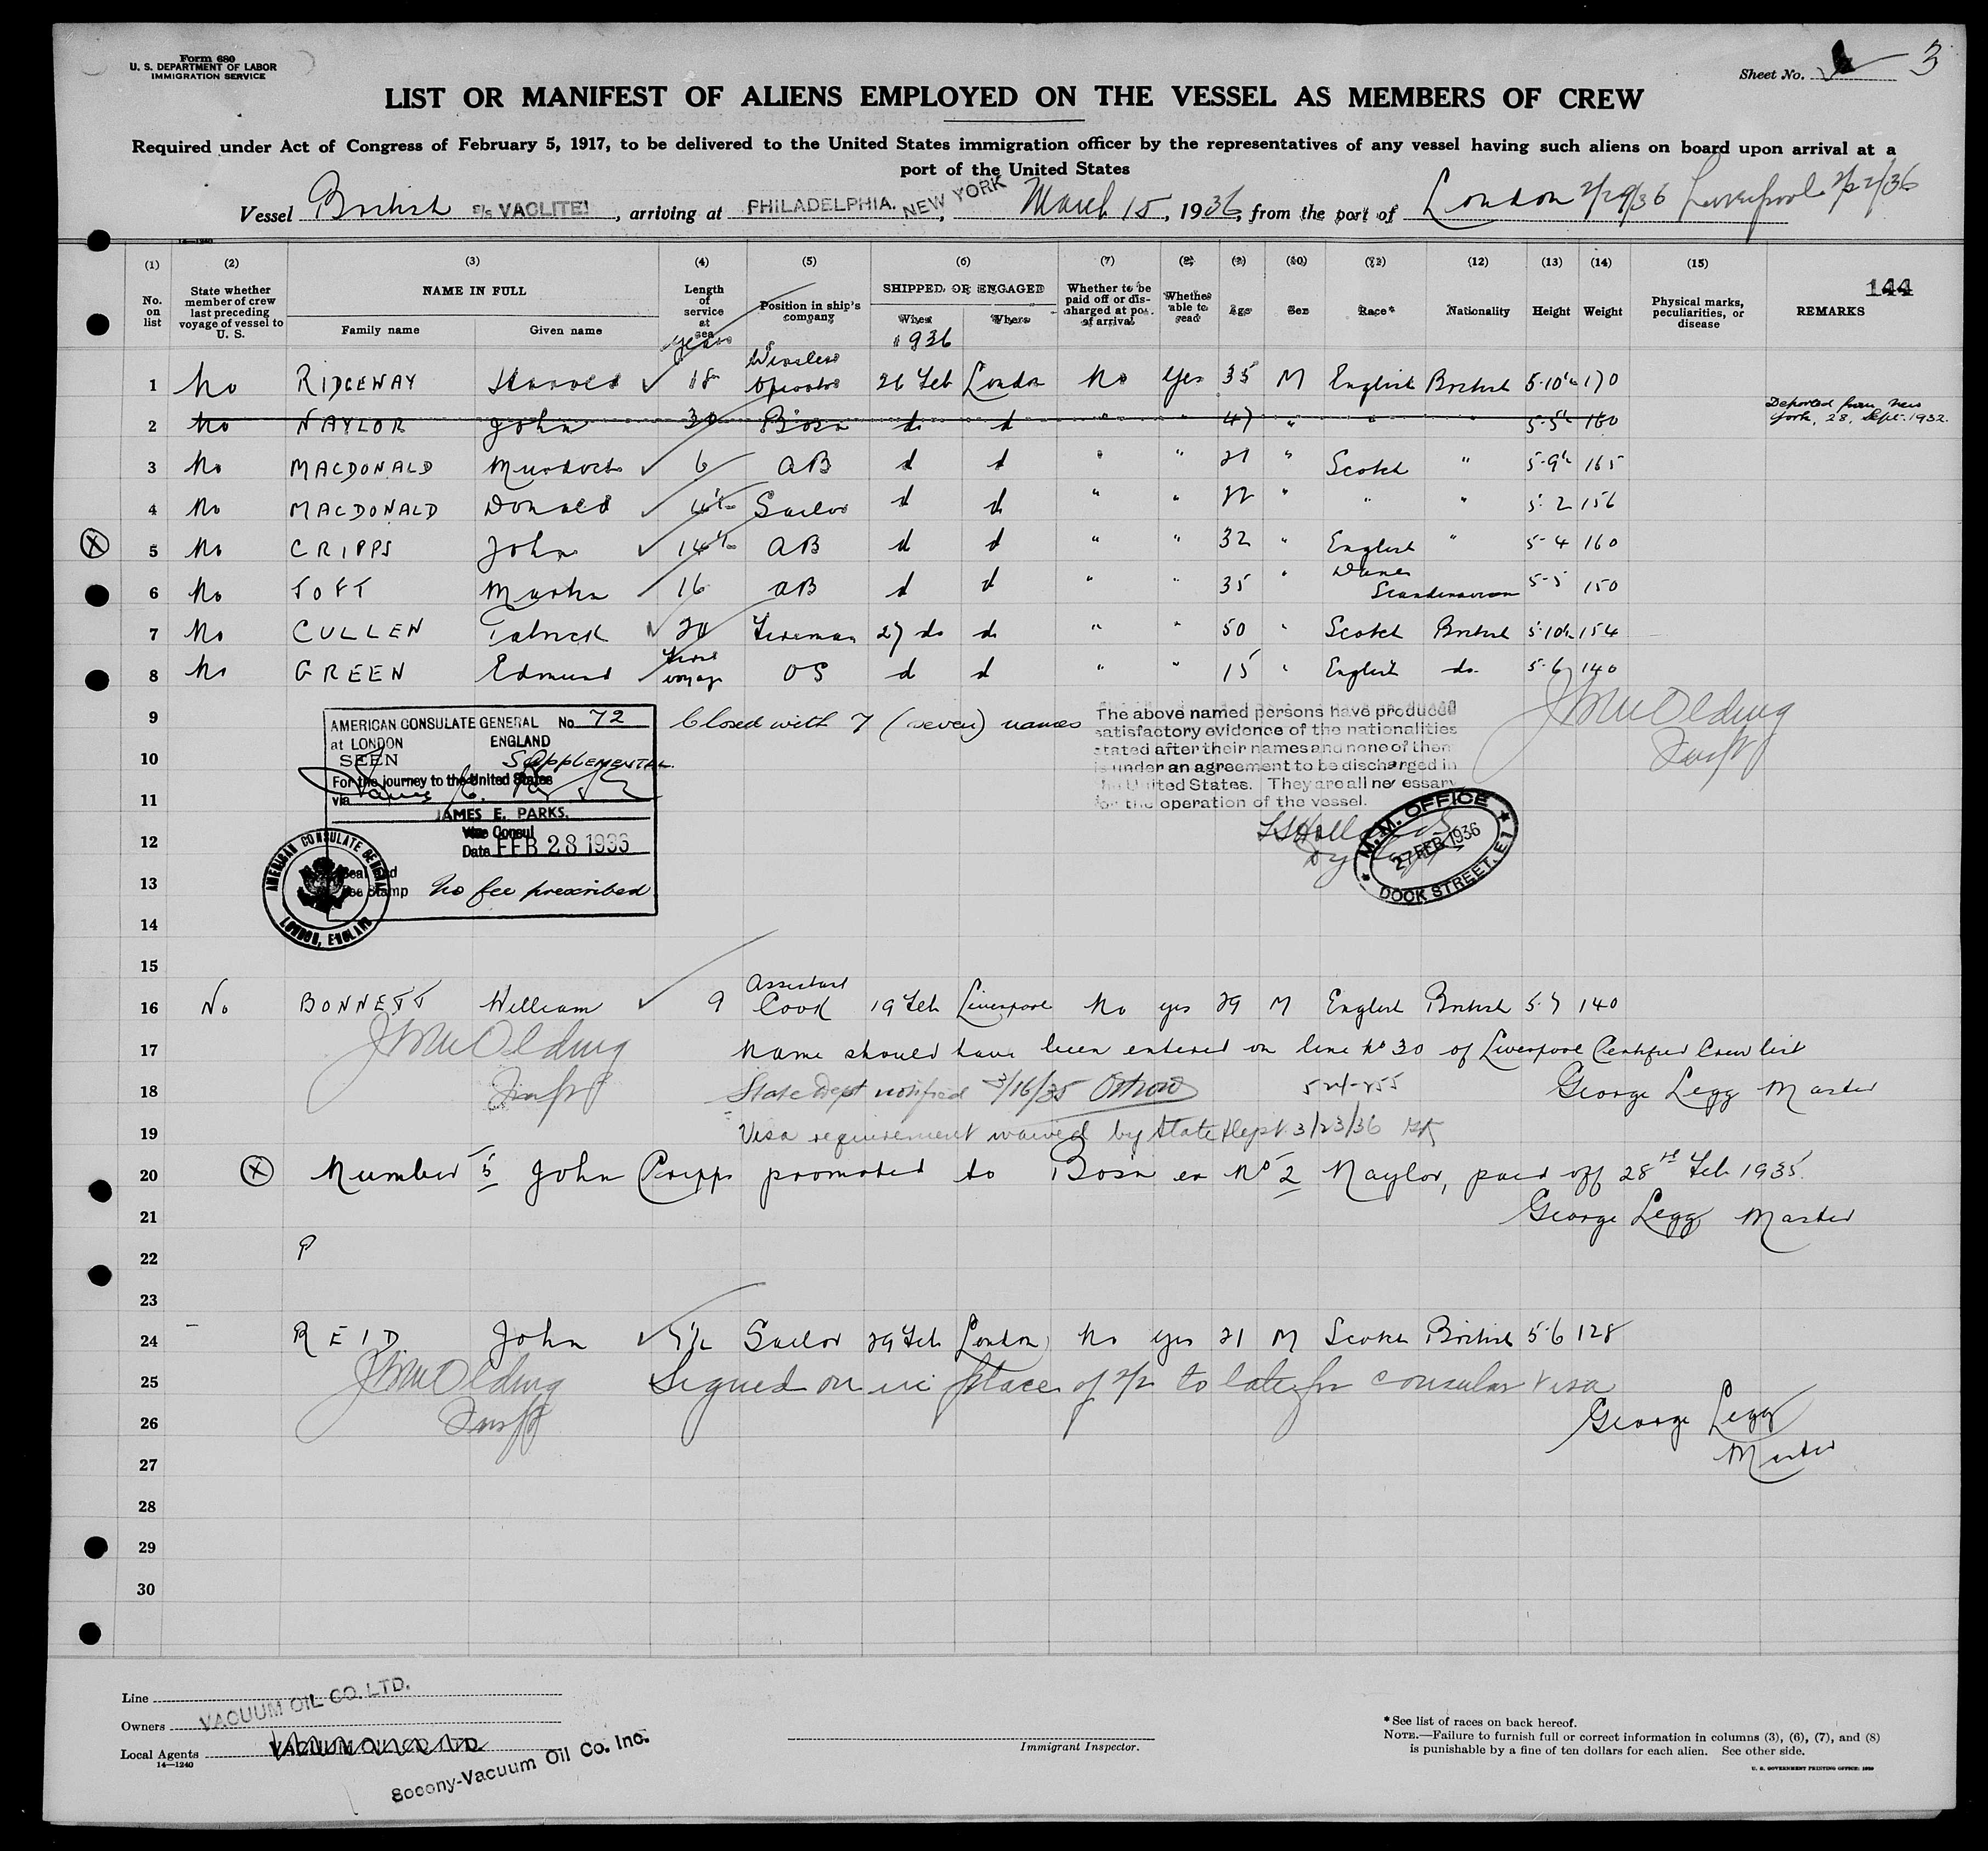 Form 680
U. S. DEPARTMENT OF LABOR
IMMIGRATION SERVICE
Sheet No. 3
LIST OR MANIFEST OF ALIENS EMPLOYED ON THE VESSEL AS MEMBERS OF CREW
Required under Act of Congress of February 5, 1917, to be delivered to the United States immigration officer by the representatives of any vessel having such aliens on board upon arrival at a
port of the United States
Vessel British S/S VACLITE!, arriving at PHILADELPHIA. NEW YORK, March 15, 1936, from the port of London 2/29/36 Liverpool 2/22/36
14—1240
(1) (2) (3) (4) (5) (6) (7) (8) (9) (10) (12) (13) (14) (15)
144
No. on list
State whether member of crew last preceding voyage of vessel to U. S.
NAME IN FULL
Family name Given name
Length of service at sea
years
Position in ship's company
SHIPPED OR ENGAGED
When Where
1936
Whether to be paid off or discharged at port of arrival
Whether able to read
Age Sex Race* Nationality Height Weight
Physical marks, peculiarities, or disease
REMARKS
1 No RIDGEWAY Harold 18 Wireless Operator 26 Feb London No Yes 35 M English British 5-10½ 170
2 No NAYLOR John 30 Bosn do d " " 47 " " 5-5½ 160 Deported from New York, 28, Sept. 1932.
3 No MACDONALD Murdoch 6 AB d d " " 21 " Scotch " 5-9½ 165
4 No MACDONALD Donald 4½ Sailor d d " " 22 " " " 5-2 156
5 No CRIPPS John 14½ AB d d " " 32 " English " 5-4 160
6 No TOFT Martin 16 AB d d " " 35 " Danes Scandinavian 5-5 150
7 No CULLEN Patrick 20 Fireman 27 do do " " 50 " Scotch British 5-10½ 154
8 No GREEN Edmund First voyage OS d d " " 15 " English do 5-6 140
9 Closed with 7 (seven) names
AMERICAN CONSULATE GENERAL No. 72
at LONDON ENGLAND
SEEN SUPPLEMENTAL
For the journey to the United States
via
JAMES E. PARKS.
Vice Consul
Date FEB 28 1936
Seal and
Fee Stamp No fee prescribed
AMERICAN CONSULATE GENERAL
LONDON, ENGLAND
The above named persons have produced
satisfactory evidence of the nationalities
stated after their names and none of them
is under an agreement to be discharged in
the United States. They are all necessary
for the operation of the vessel.
M.M. OFFICE
27 FEB 1936
DOCK STREET. E1
10
11
12
13
14
15
16 No BONNETT William 9 Assistant Cook 19 Feb Liverpool No yes 29 M English British 5-7 140
17 Name should have been entered on line No 30 of Liverpool Certified Crew list
18 State Dept notified 3/16/35 George Legg Master
19 Visa requirement waived by State Dept 3/23/36
20 Number 5 John Cripps promoted to Bosn No 2 Naylor, paid off 28th Feb 1935.
21 George Legg Master
22
23
24 REID John Sailor 29 Feb London No yes 21 M Scotch British 5-6 128
25 Signed on in place of 2/2 to late for consular visa
26 George Legg
27 Master
28
29
30
Line
Owners VACUUM OIL CO. LTD.
Local Agents VACUUM OIL CO. LTD.
14—1240
Socony-Vacuum Oil Co. Inc.
Immigrant Inspector.
* See list of races on back hereof.
NOTE.—Failure to furnish full or correct information in columns (3), (6), (7), and (8)
is punishable by a fine of ten dollars for each alien. See other side.
U. S. GOVERNMENT PRINTING OFFICE: